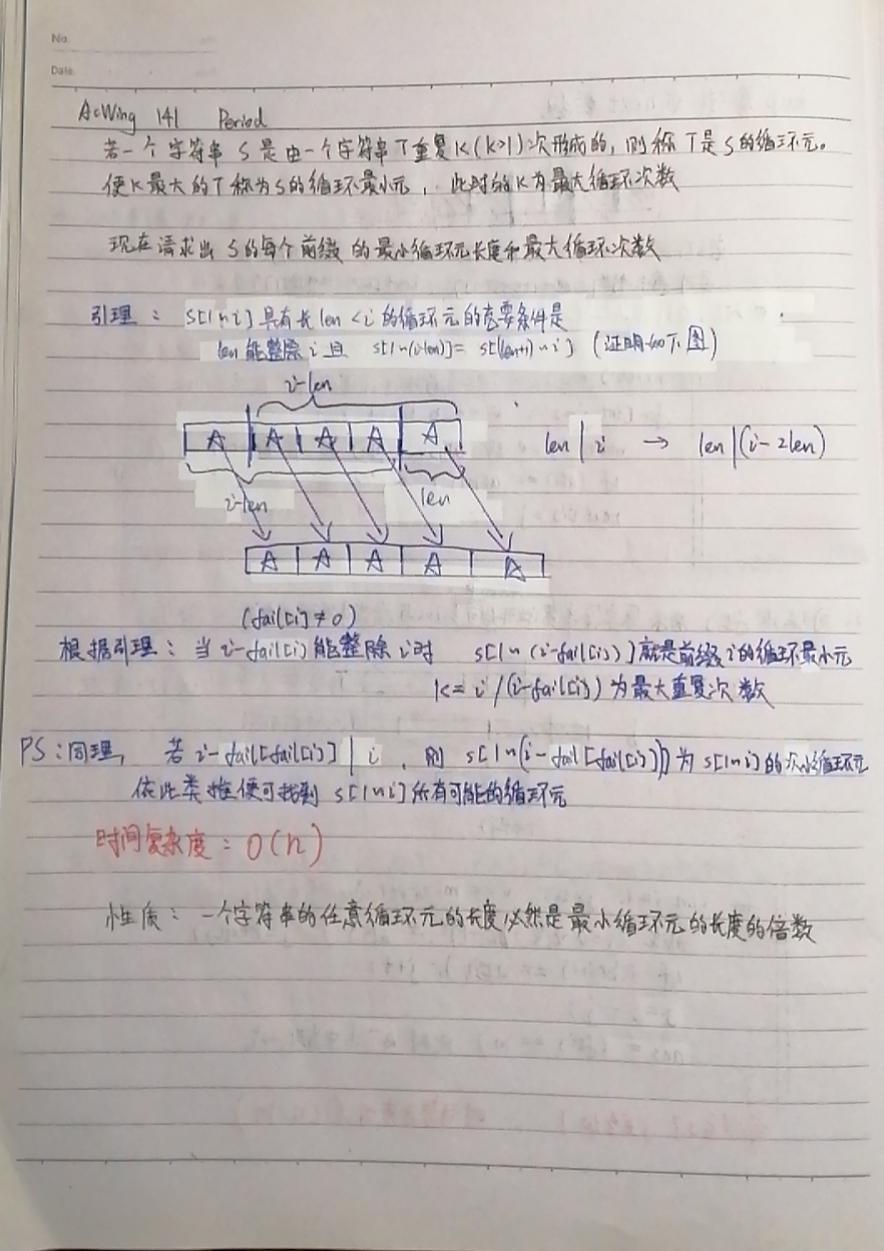 No.
Date.
AcWing 141 Period
若一个字符串 S 是由一个字符串 T 重复 K (K>1) 次形成的, 则称 T 是 S 的循环元。
使 K 最大的 T 称为 S 的循环最小元, 此时的 K 为最大循环次数
现在请求出 S 的每个前缀 的最小循环元长度和最大循环次数
引理: S[1~i] 具有长 len < i 的循环元的充要条件是
len 能整除 i 且 S[1~(i-len)] = S[(len+1)~i] (证明如下图)
i-len
A A A A A len | i → len | (i-2len)
i-len len
A A A A A
(fail[i] ≠ 0)
根据引理: 当 i-fail[i] 能整除 i 时 S[1~(i-fail[i])] 就是前缀 i 的循环最小元
K = i / (i-fail[i]) 为最大重复次数
PS: 同理, 若 i-fail[fail[i]] | i, 则 S[1~(i-fail[fail[i]])] 为 S[1~i] 的次小循环元
依此类推便可找到 S[1~i] 所有可能的循环元
时间复杂度: O(n)
性质: 一个字符串的任意循环元的长度必然是最小循环元的长度的倍数